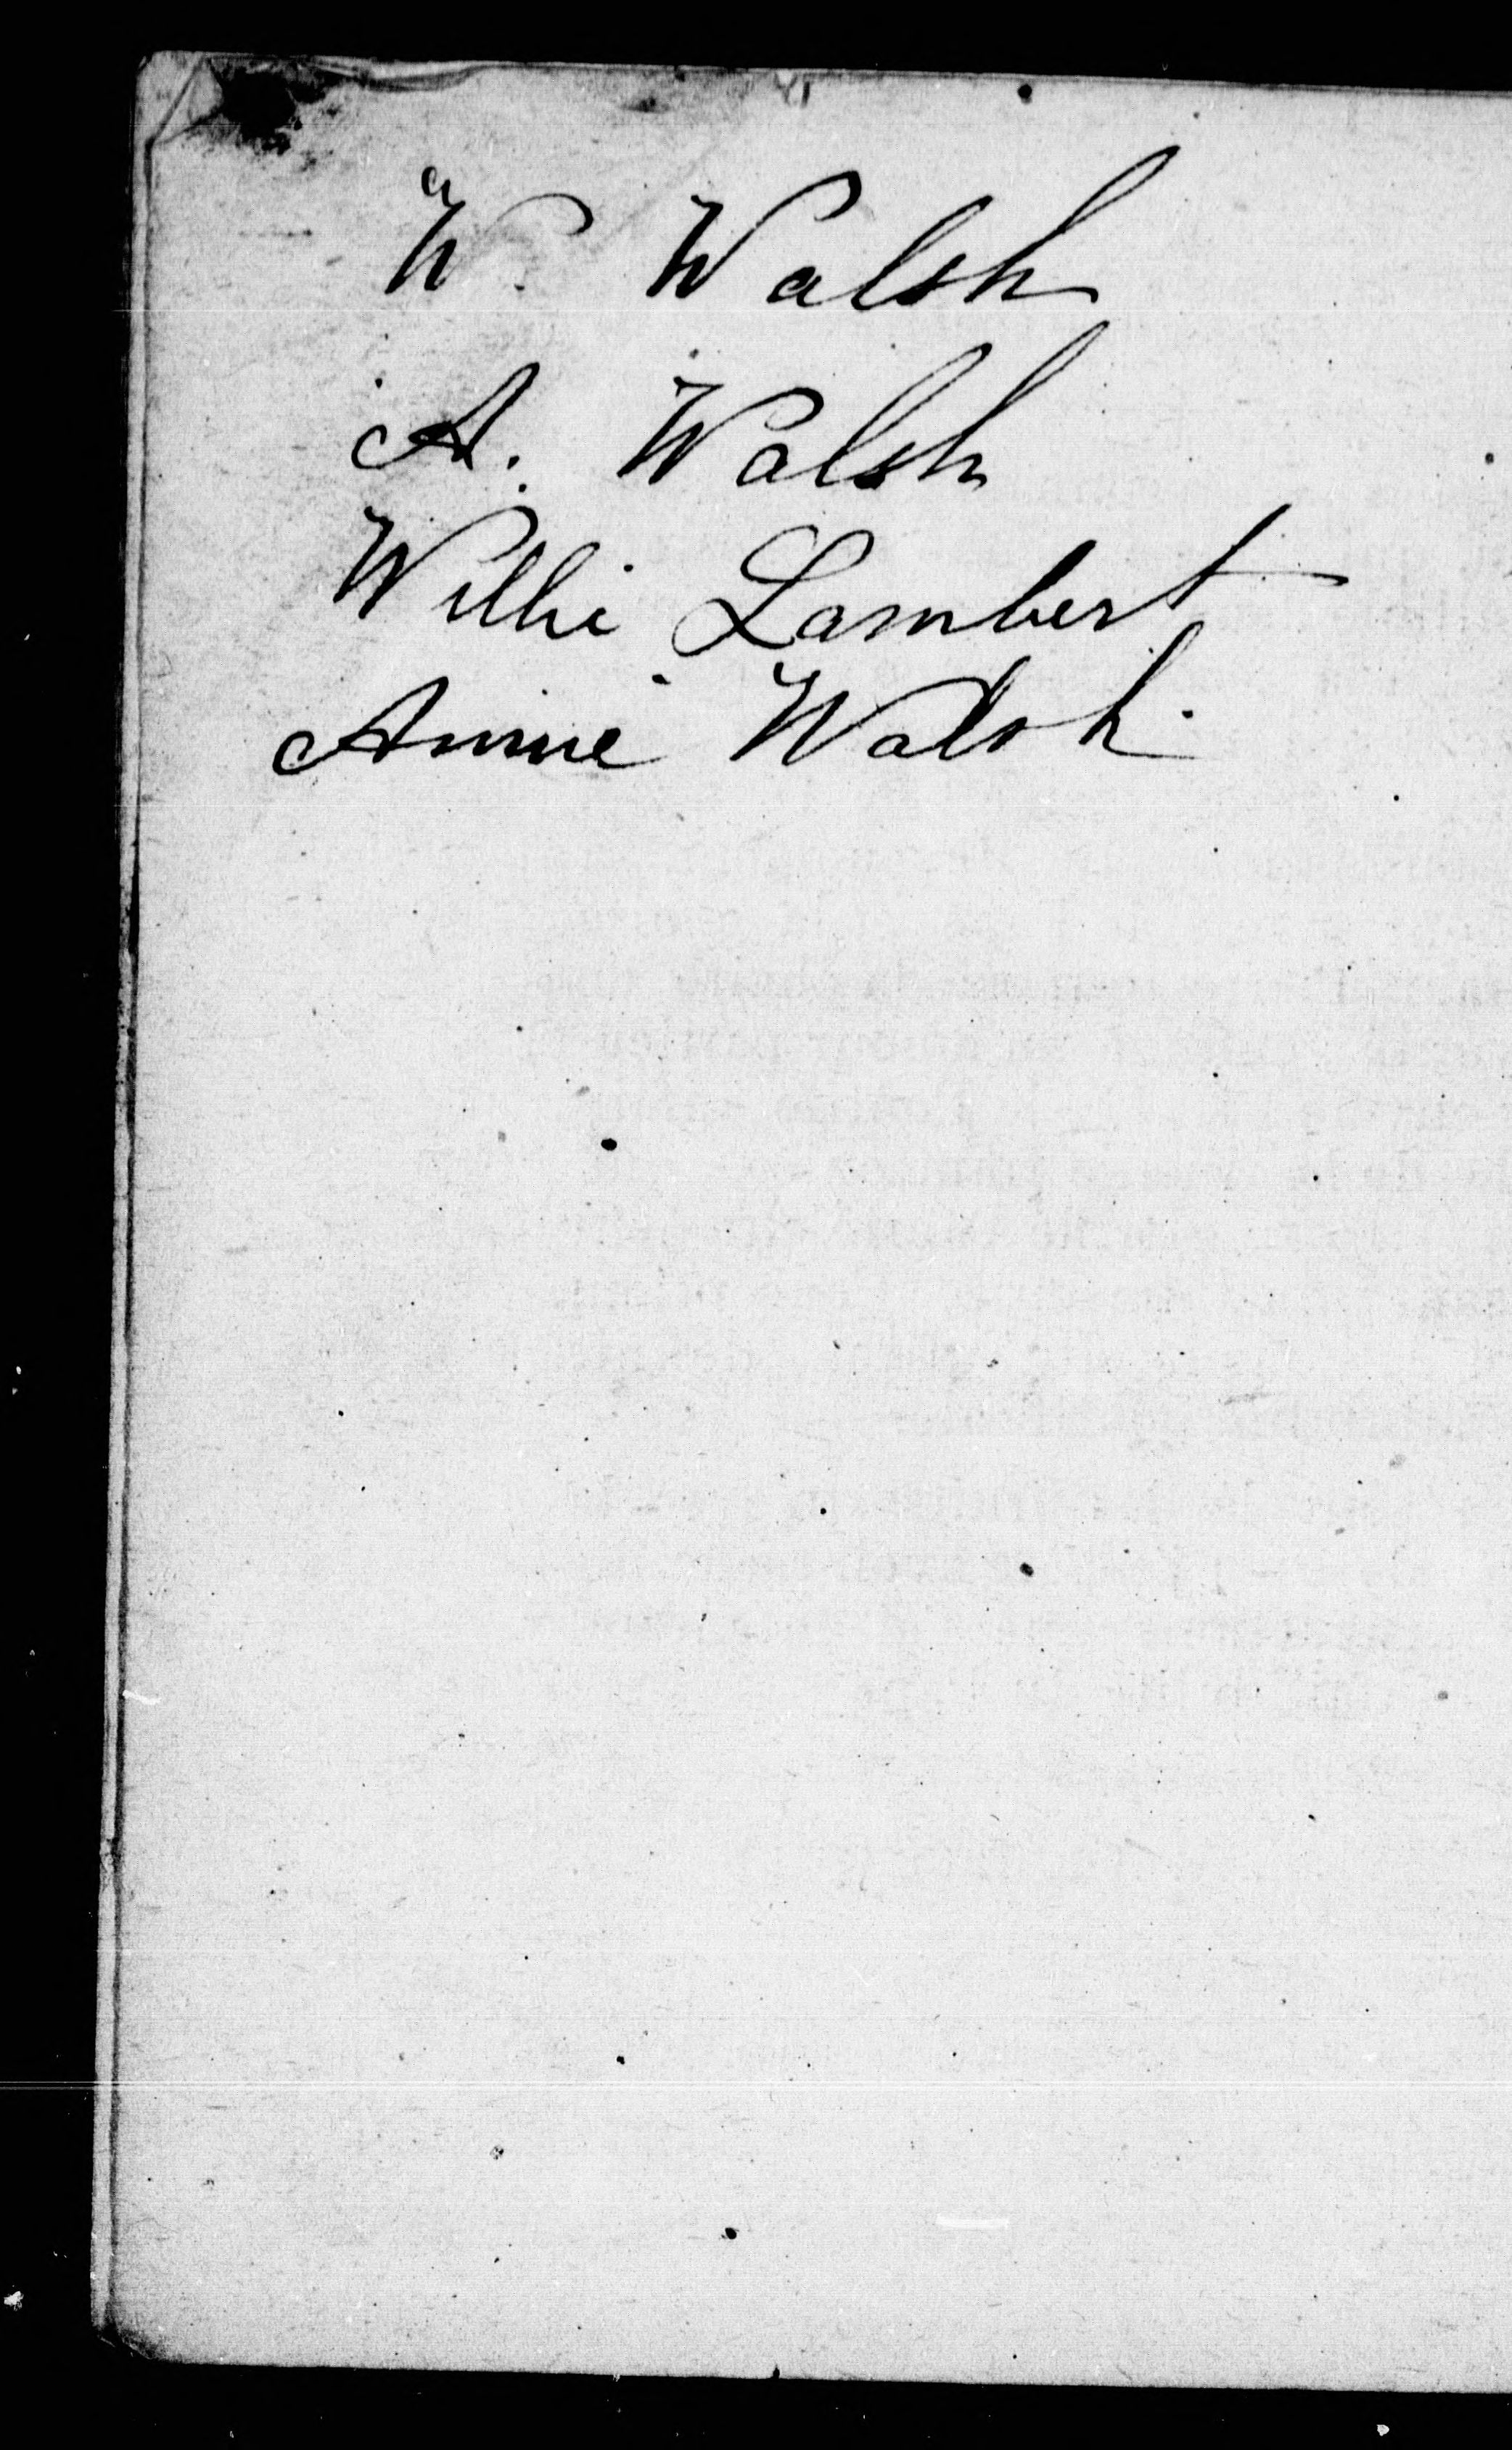 W. Walsh
A. Walsh
Willie Lambert
Annie Walsh